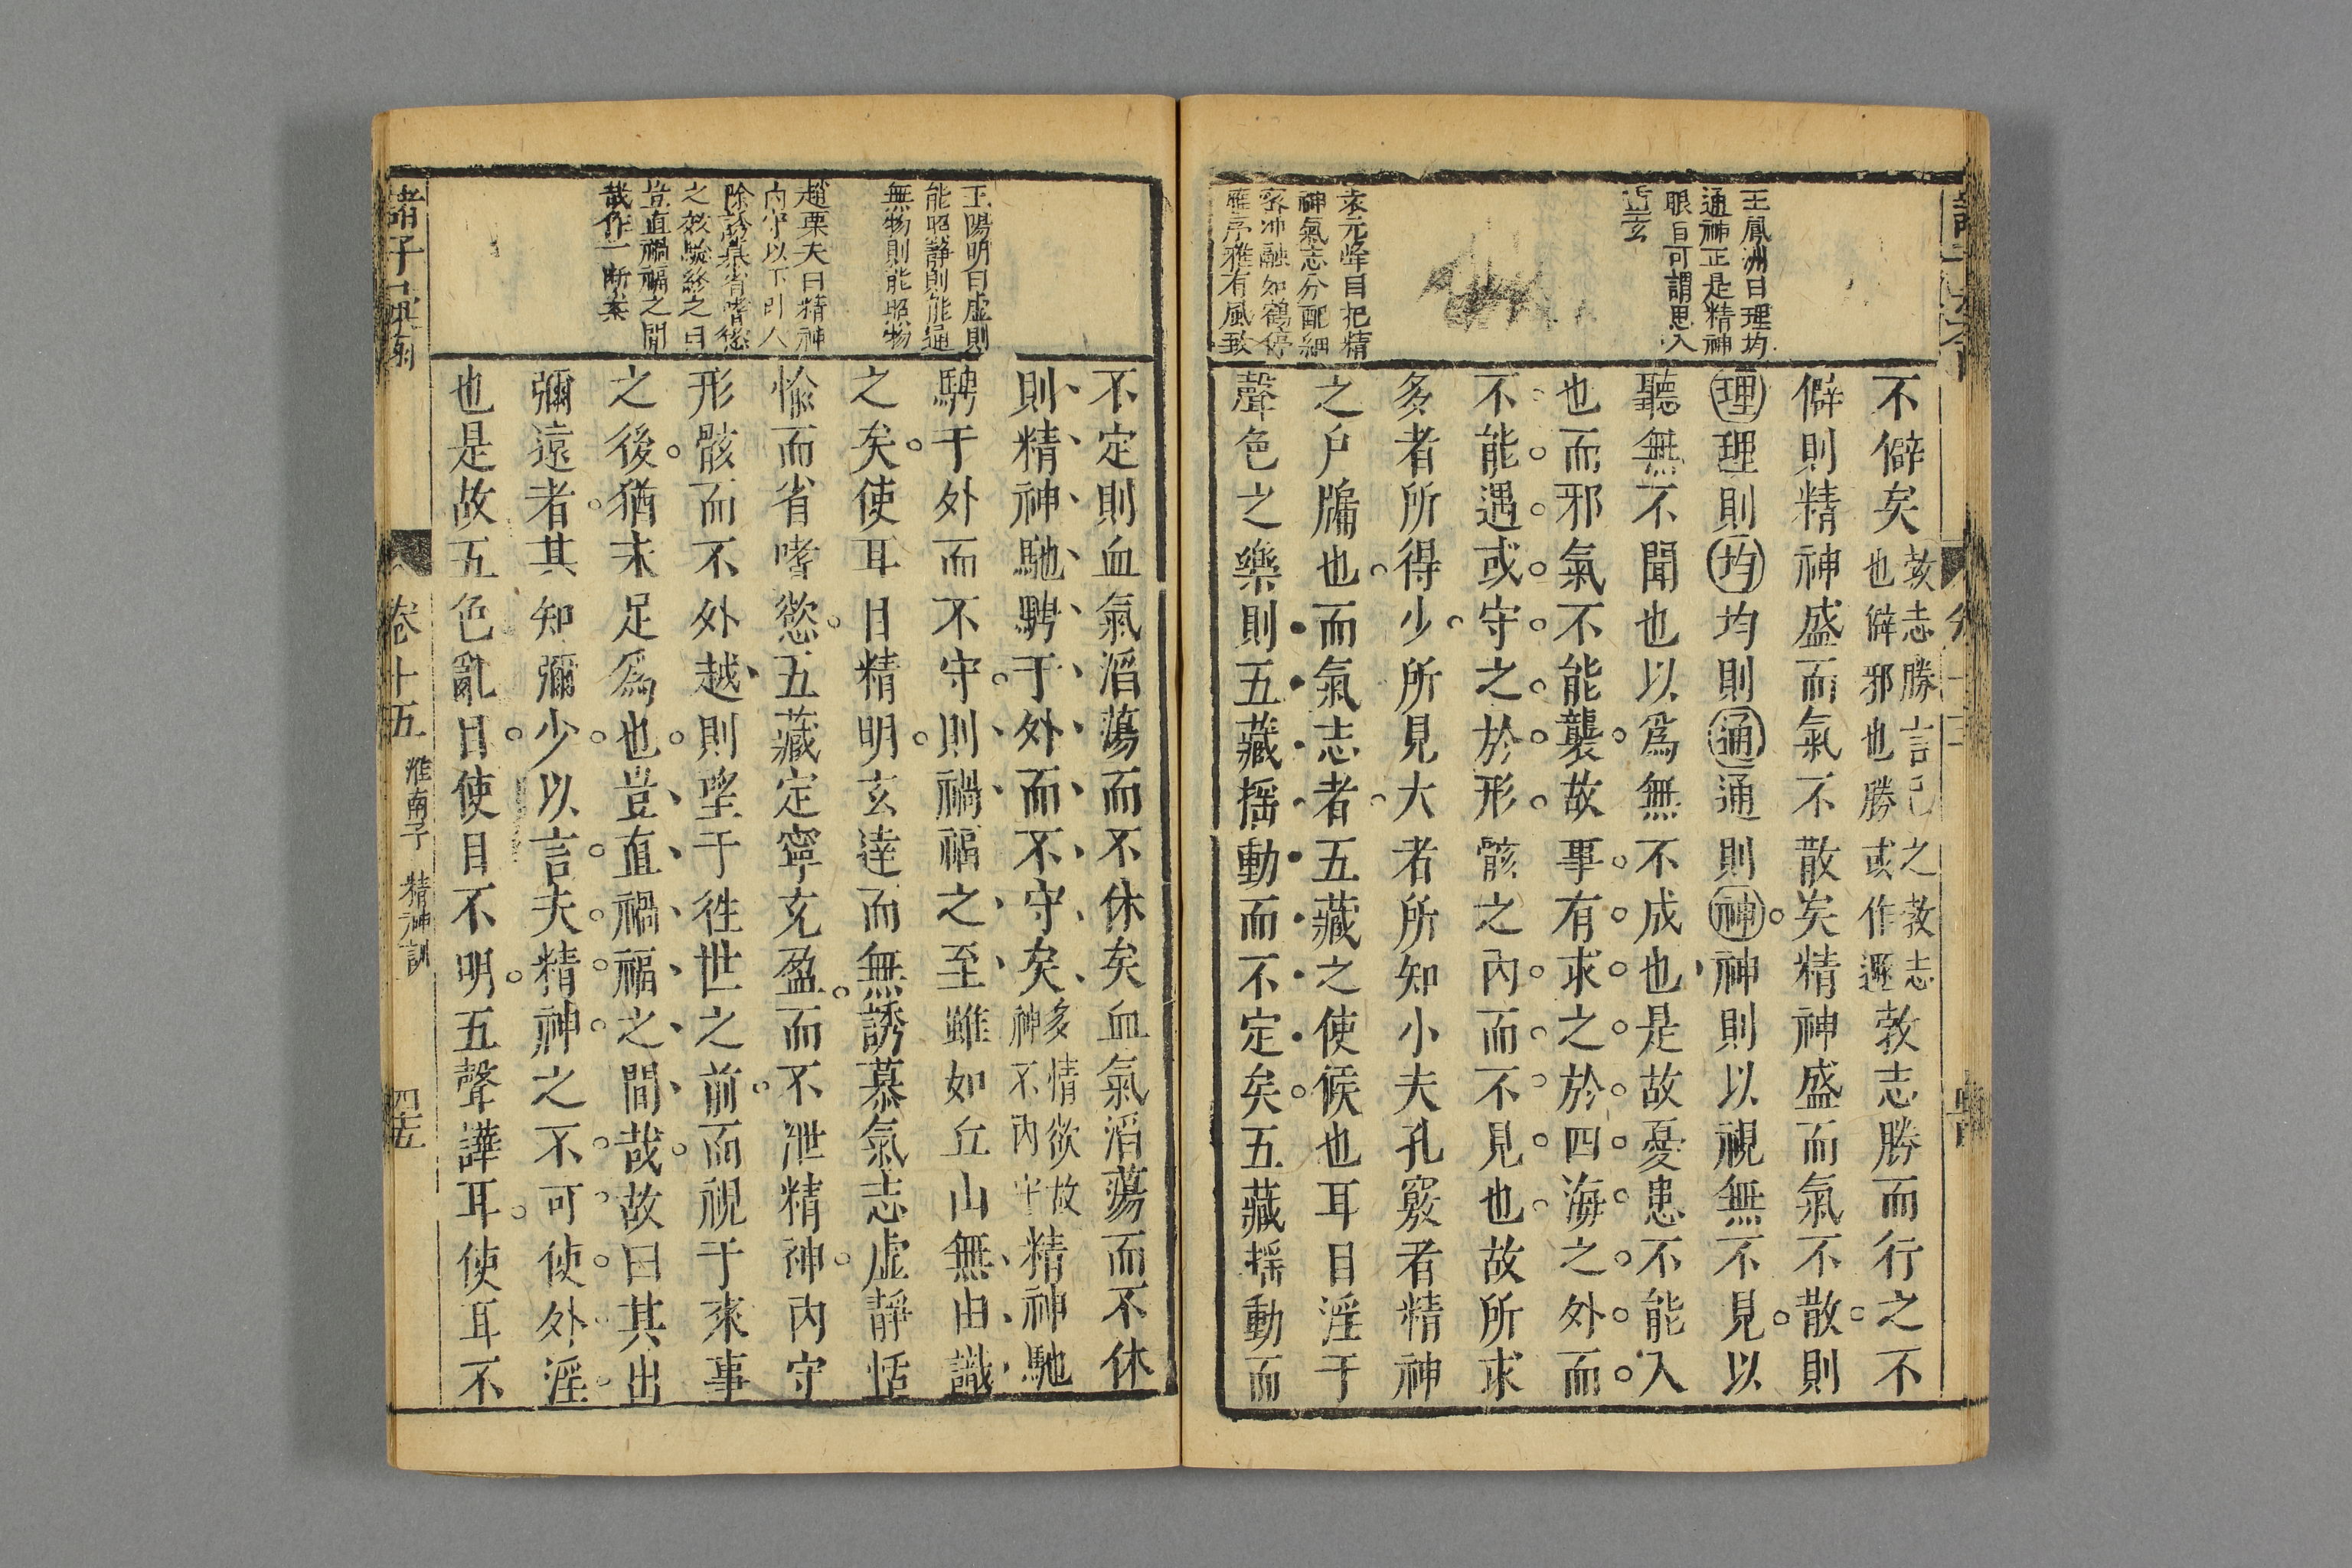 王鳳洲曰理均
通神正是精神
眼目可謂思入
袁元峰曰把精
神氣志分配細
密冲融如鶴停
鴈序雅有風致
不僻矣
敎志勝言己之敎志
也僻邪也勝或作遯
敎志勝而行之不
僻則精神盛而氣不散矣精神盛而氣不散則
理理則均均則通通則神神則以視無不見以
聽無不聞也以爲無不成也是故憂患不能入
也而邪氣不能襲故事有求之於四海之外而
不能遇或守之於形骸之內而不見也故所求
多者所得少所見大者所知小夫孔竅者精神
之戶牖也而氣志者五藏之使候也耳目淫于
聲色之樂則五藏揺動而不定矣五藏揺動而
王陽明曰虛則
能昭靜則能通
無物則能昭物
趙栗夫曰精神
內守以下引人
除誘慕省嗜慾
之效驗終之曰
豈直禍福之間
哉作一斷案
不定則血氣滔蕩而不休矣血氣滔蕩而不休
則精神馳騁于外而不守矣
多情欲故
神不內守
精神馳
騁于外而不守則禍福之至雖如丘山無由識
之矣使耳目精明玄達而無誘慕氣志虛靜恬
愉而省嗜慾五藏定寧充盈而不泄精神內守
形骸而不外越則望于徃世之前而視于來事
之後猶未足爲也豈直禍福之間哉故曰其出
彌遠者其知彌少以言夫精神之不可使外淫
也是故五色亂目使目不明五聲譁耳使耳不
卷十五 淮南子 精神訓